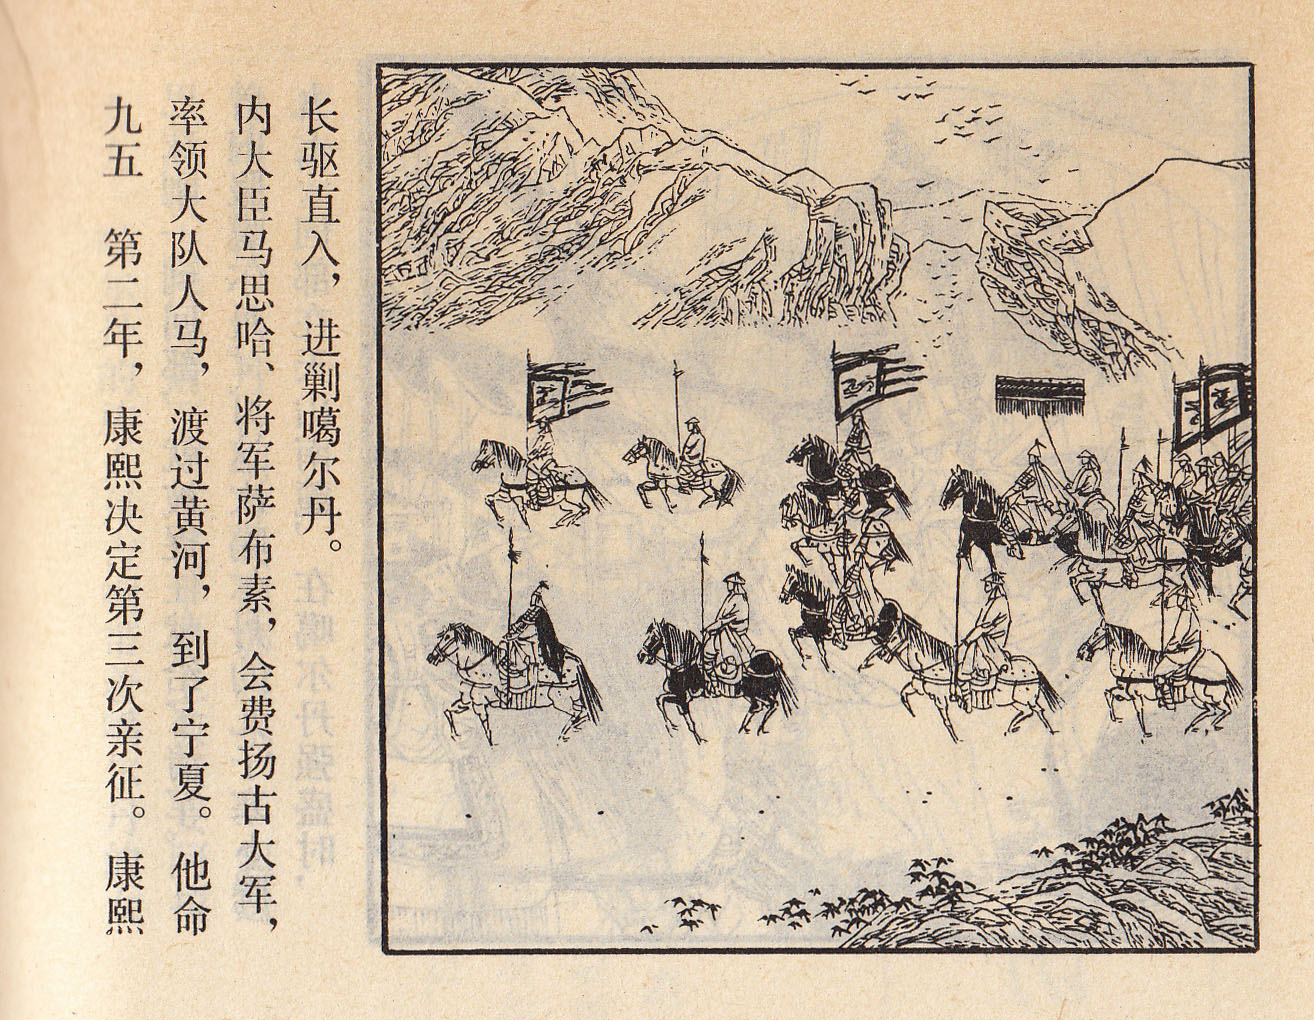 九五　第二年，康熙决定第三次亲征。康熙
率领大队人马，渡过黄河，到了宁夏。他命
内大臣马思哈、将军萨布素，会费扬古大军，
长驱直入，进剿噶尔丹。